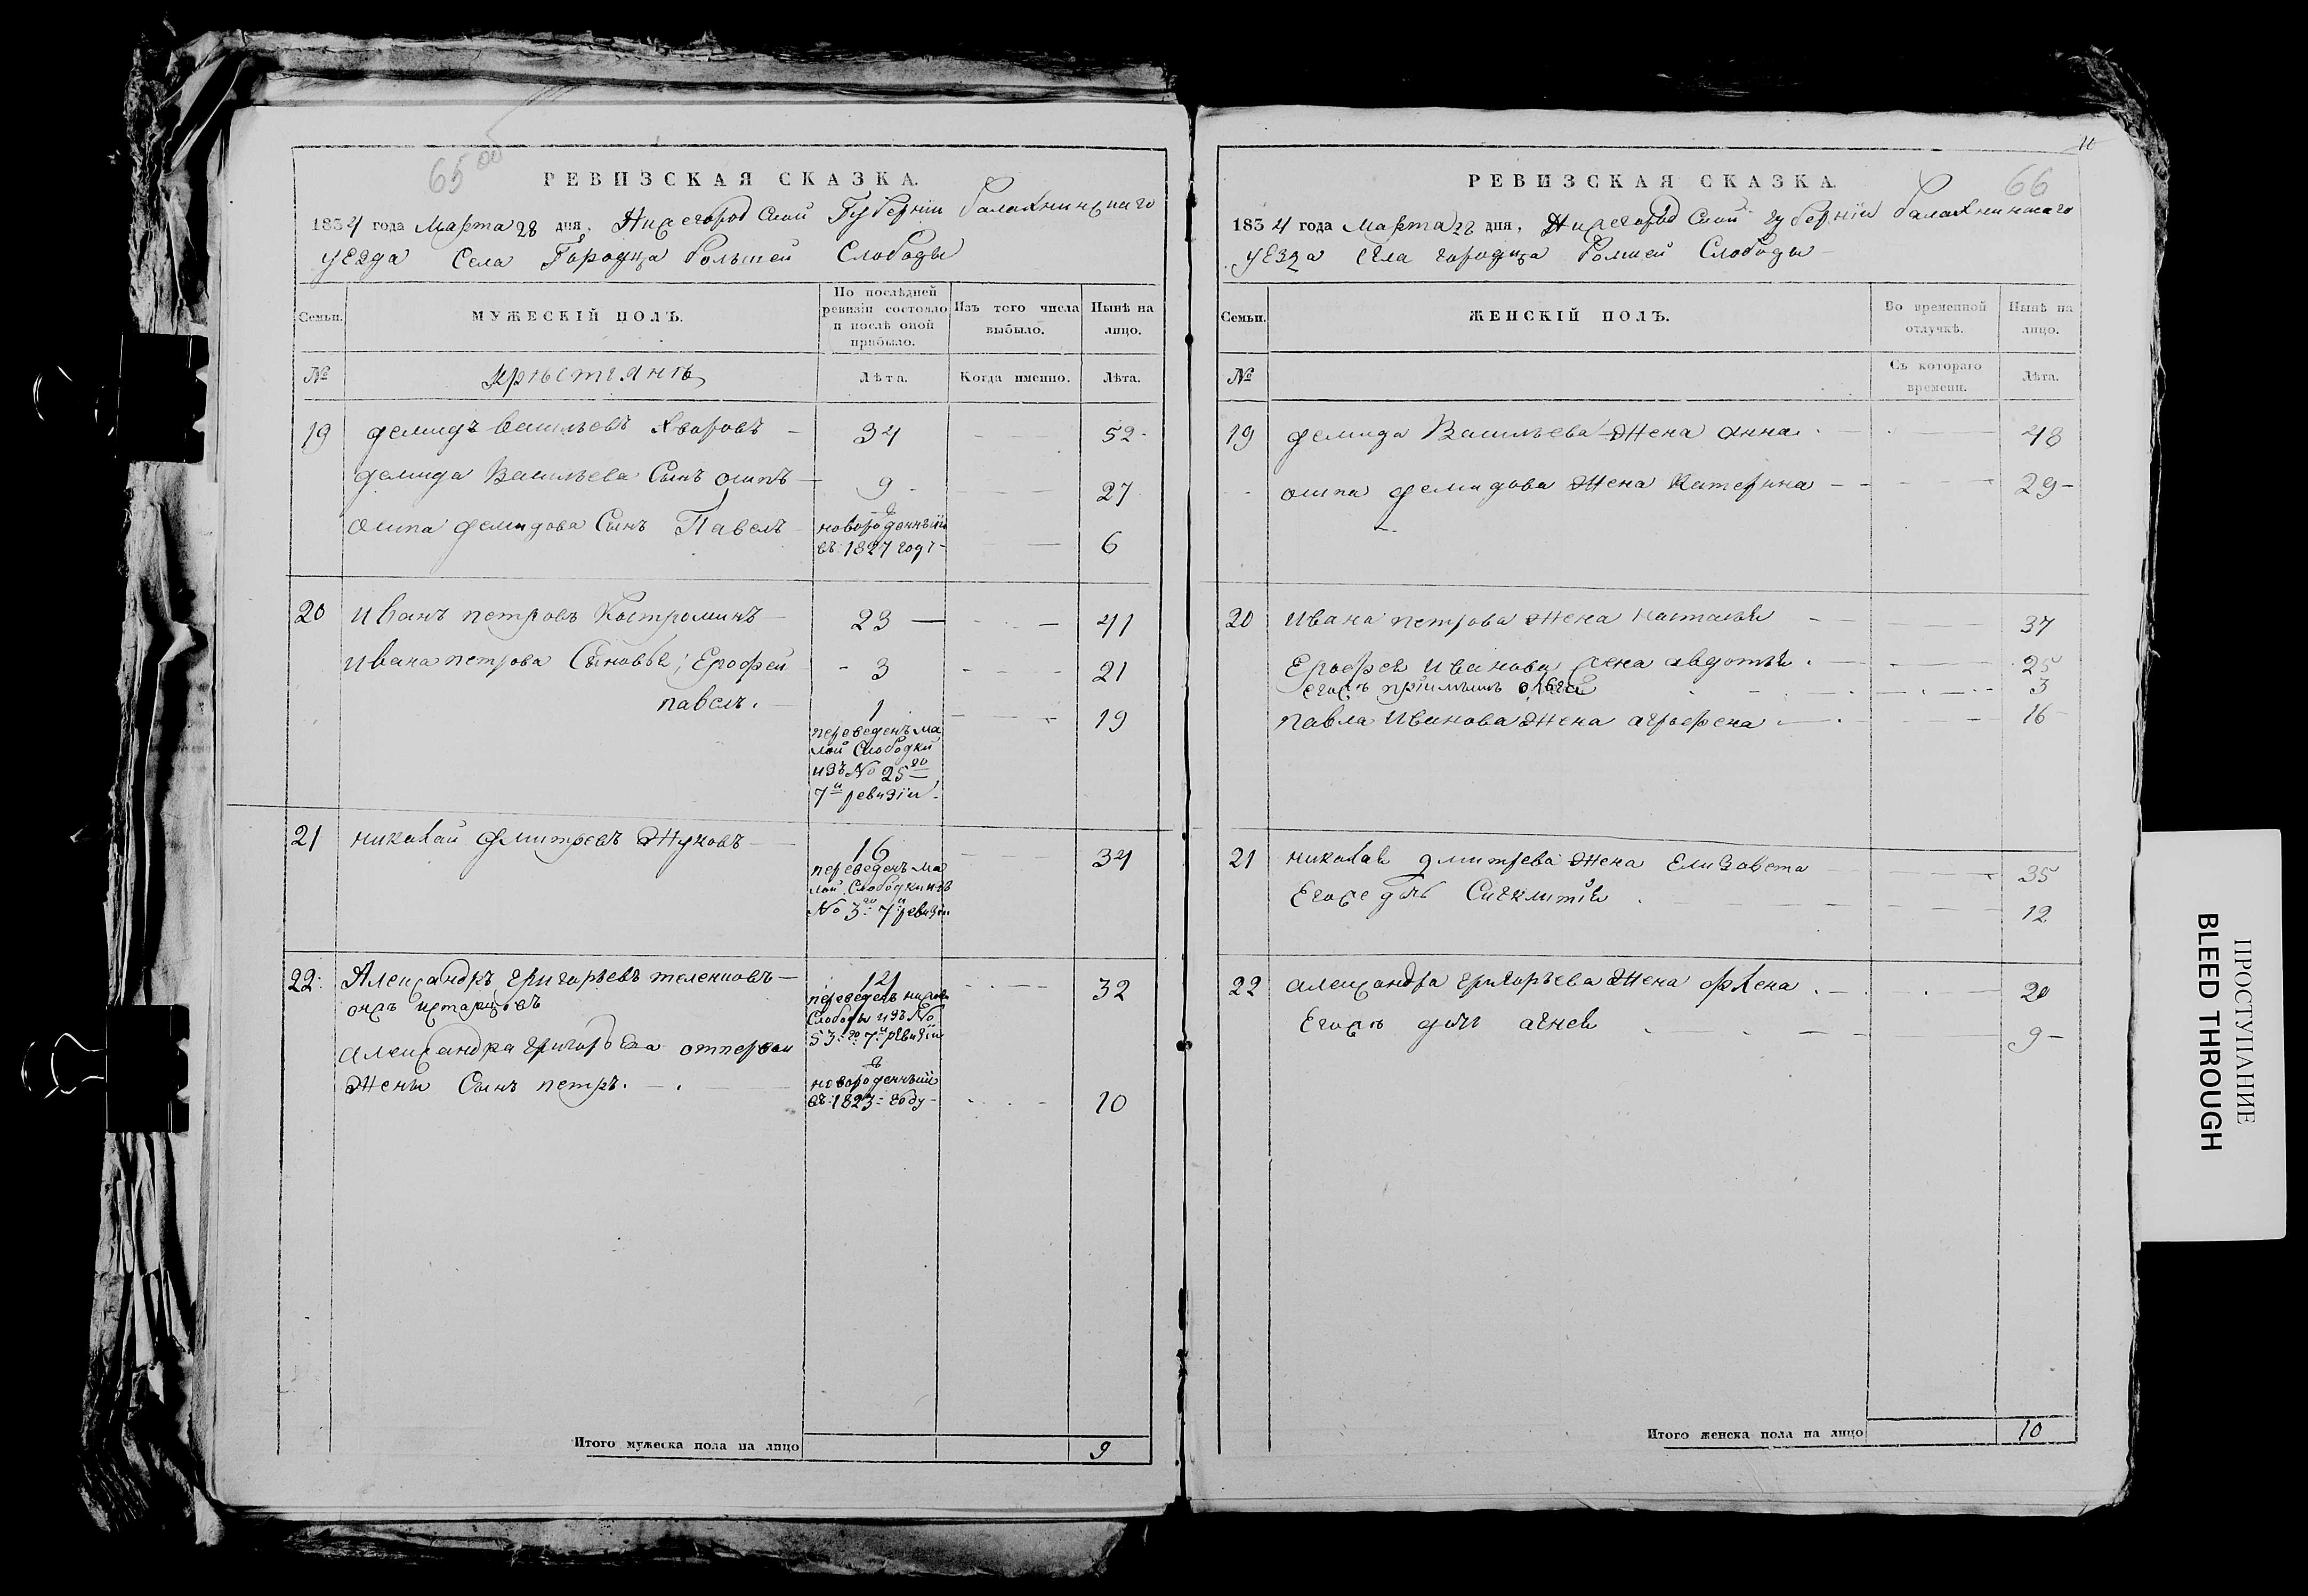 65 об
РЕВИЗСКАЯ СКАЗКА.
1834 года Марта 28 дня, Нижегородской Губернии балахнинскаго
уезда Села Городца большей Слободы
Семьи.
МУЖЕСКІЙ ПОЛЪ.
По послѣдней ревизіи состояло и послѣ оной прибыло.
Изъ того числа выбыло.
Нынѣ на лицо.
№
крѣстьянѣ
Лѣта.
Когда именно.
Лѣта.
19 демидъ васильевъ 34 52
демида Васильева Сынъ осипъ 9 27
осипа демидова Сынъ Павелъ новорожденный
въ 1827 году 6
20 иванъ петровъ Костроминъ 23 41
ивана петрова Сыновья; Ерофей 3 21
павелъ. 1 19
переведенъ ма
лой Слободки
изъ № 25го
7й ревизіи
21 николай дмитревъ Жуковъ 16 34
переведенъ ма
лой Слободки изъ
№ 3го 7й ревизіи
22 Александръ григорьевъ 14 32
онже
переведенъ
Слободы изъ №
53го 7й ревизіи
александра григорьева отпервои
Жены Сынъ петръ. новорожденный
въ 1823 году 10
Итого мужеска пола на лицо 9
11
66
РЕВИЗСКАЯ СКАЗКА.
1834 года Марта 28 дня, Нижегородской губерніи балахнинскаго
уезда села городца болшей Слободы
Семьи.
ЖЕНСКІЙ ПОЛЪ.
Во временной отлучкѣ.
Нынѣ на лицо.
№
Съ котораго времени.
Лѣта.
19 демида Васильева Жена анна 48
осипа демидова Жена Катерина 29
20 ивана петрова Жена настасья 37
Ерофея иванова жена авдотья 25
3
павла иванова Жена аграфена 16
21 николая дмитрева жена Елизавета 35
Егоже дочь Сигклитія 12
22 александра григорьева Жена 20
Егожъ дочь 9
Итого женска пола на лицо 10
ПРОСТУПАНИЕ
BLEED THROUGH